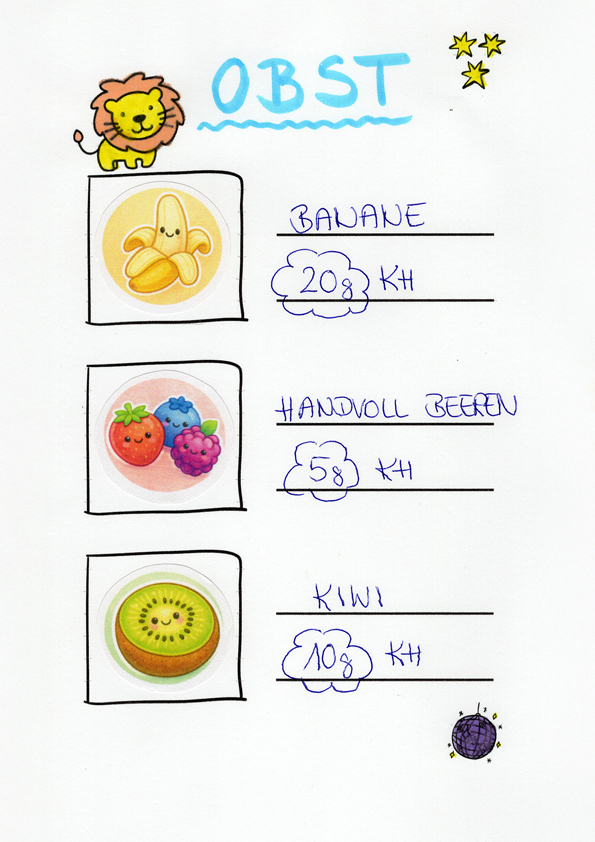 OBST
BANANE
20g KH
HANDVOLL BEEREN
5g KH
KIWI
10g KH